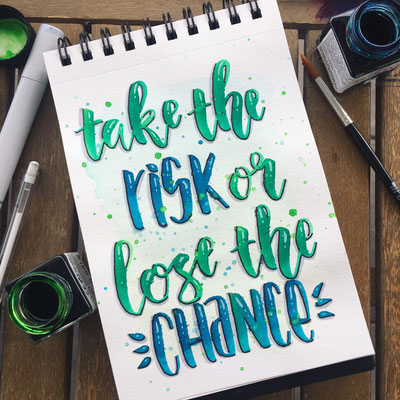 take the
risk or
lose the
chance